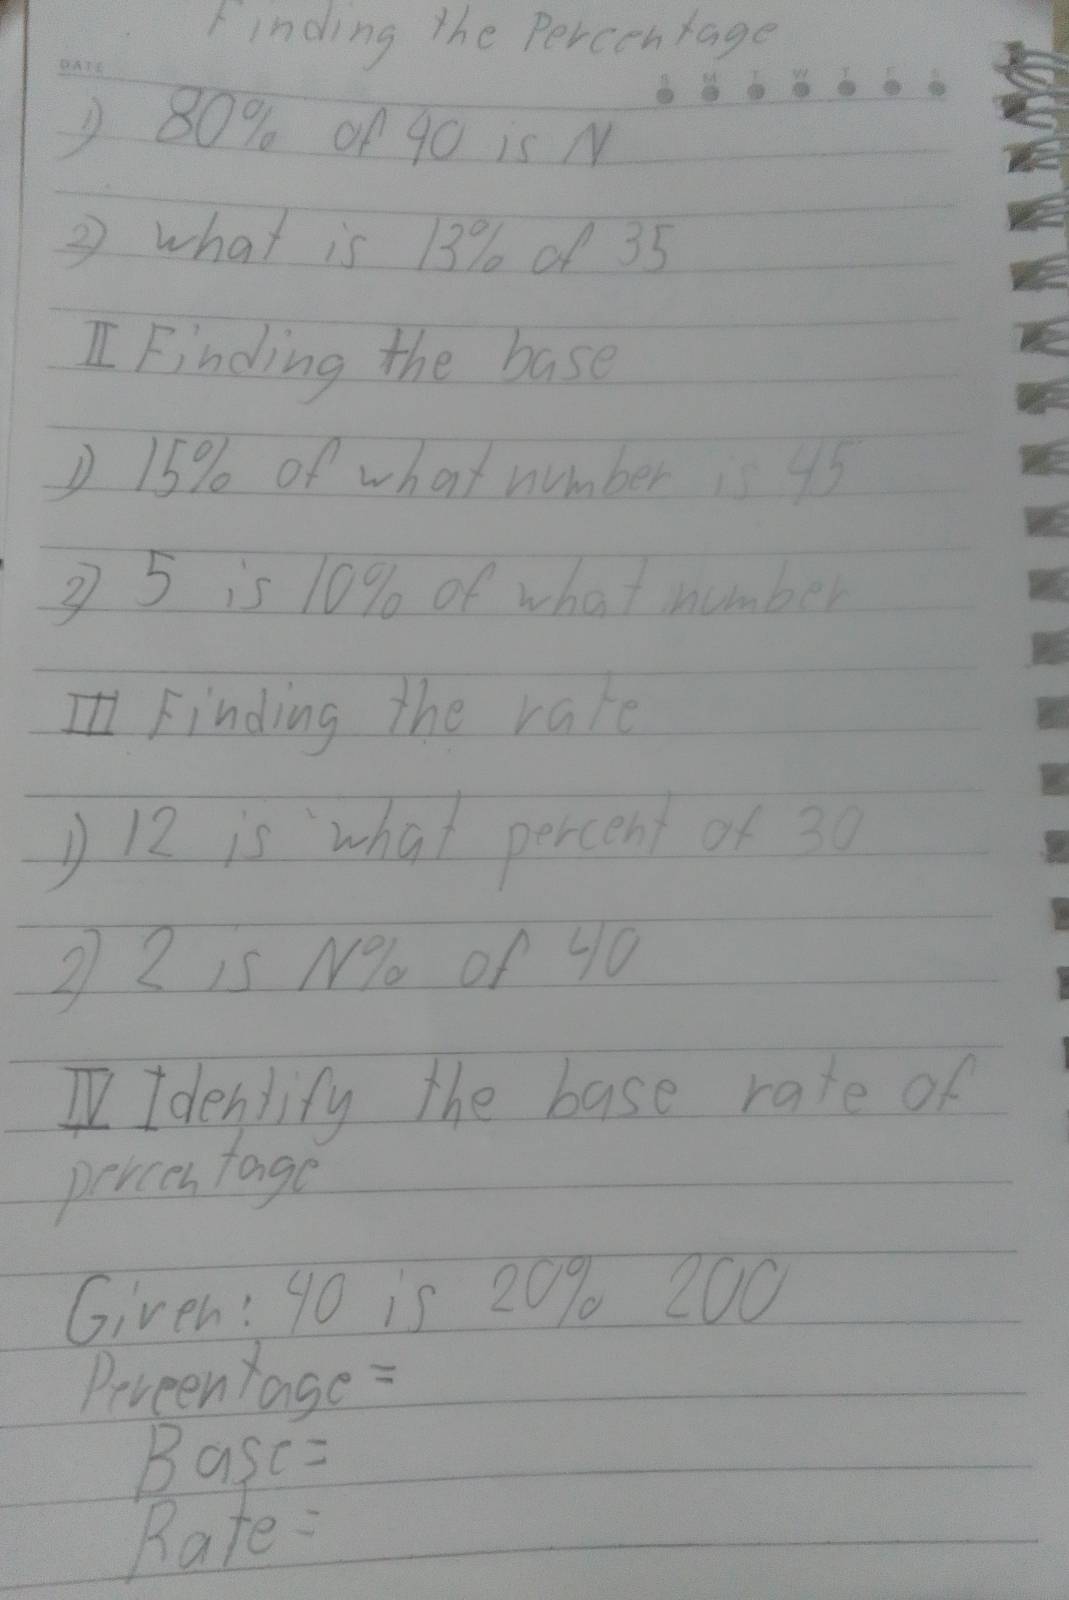 Finding the Percentage
DATE
S M T W T F S
1) 80% of 90 is N
2) what is 13% of 35
II Finding the base
1) 15% of what number is 45
2) 5 is 10% of what number
III Finding the rate
1) 12 is what percent of 30
2) 2 is N% of 40
IV Identify the base rate of
percentage
Given: 40 is 20% 200
Percentage =
Base =
Rate =